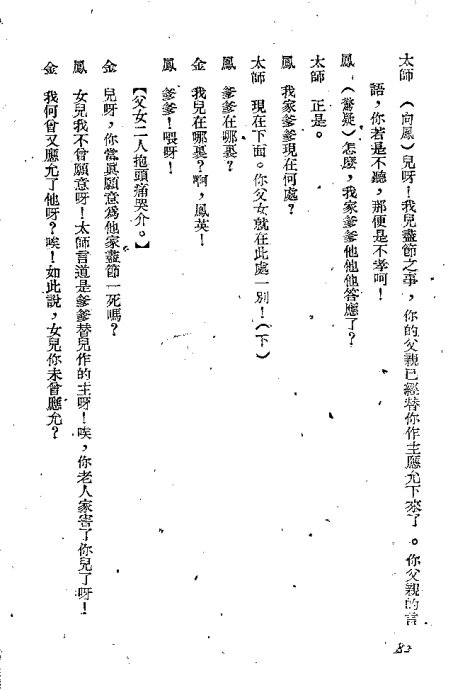 太師　（向鳳）兒呀！我兒盡節之事，你的父親已經替你作主應允下來了。你父親的言
語，你若是不聽，那便是不孝呵！
鳳　（驚疑）怎麽，我家爹爹他他他答應了？
太師　正是。
鳳　我家爹爹現在何處？
太師　現在下面。你父女就在此處一別！（下）
鳳　爹爹在哪裏？
金　我兒在哪裏？啊，鳳英！
鳳　爹爹！喂呀！
【父女二人抱頭痛哭介。】
金　兒呀，你當真願意爲他家盡節一死嗎？
鳳　女兒我不曾願意呀！太師言道是爹爹替兒作的主呀！唉，你老人家害了你兒了呀！
金　我何曾又應允了他呀？唉！如此說，女兒你未曾應允？
83